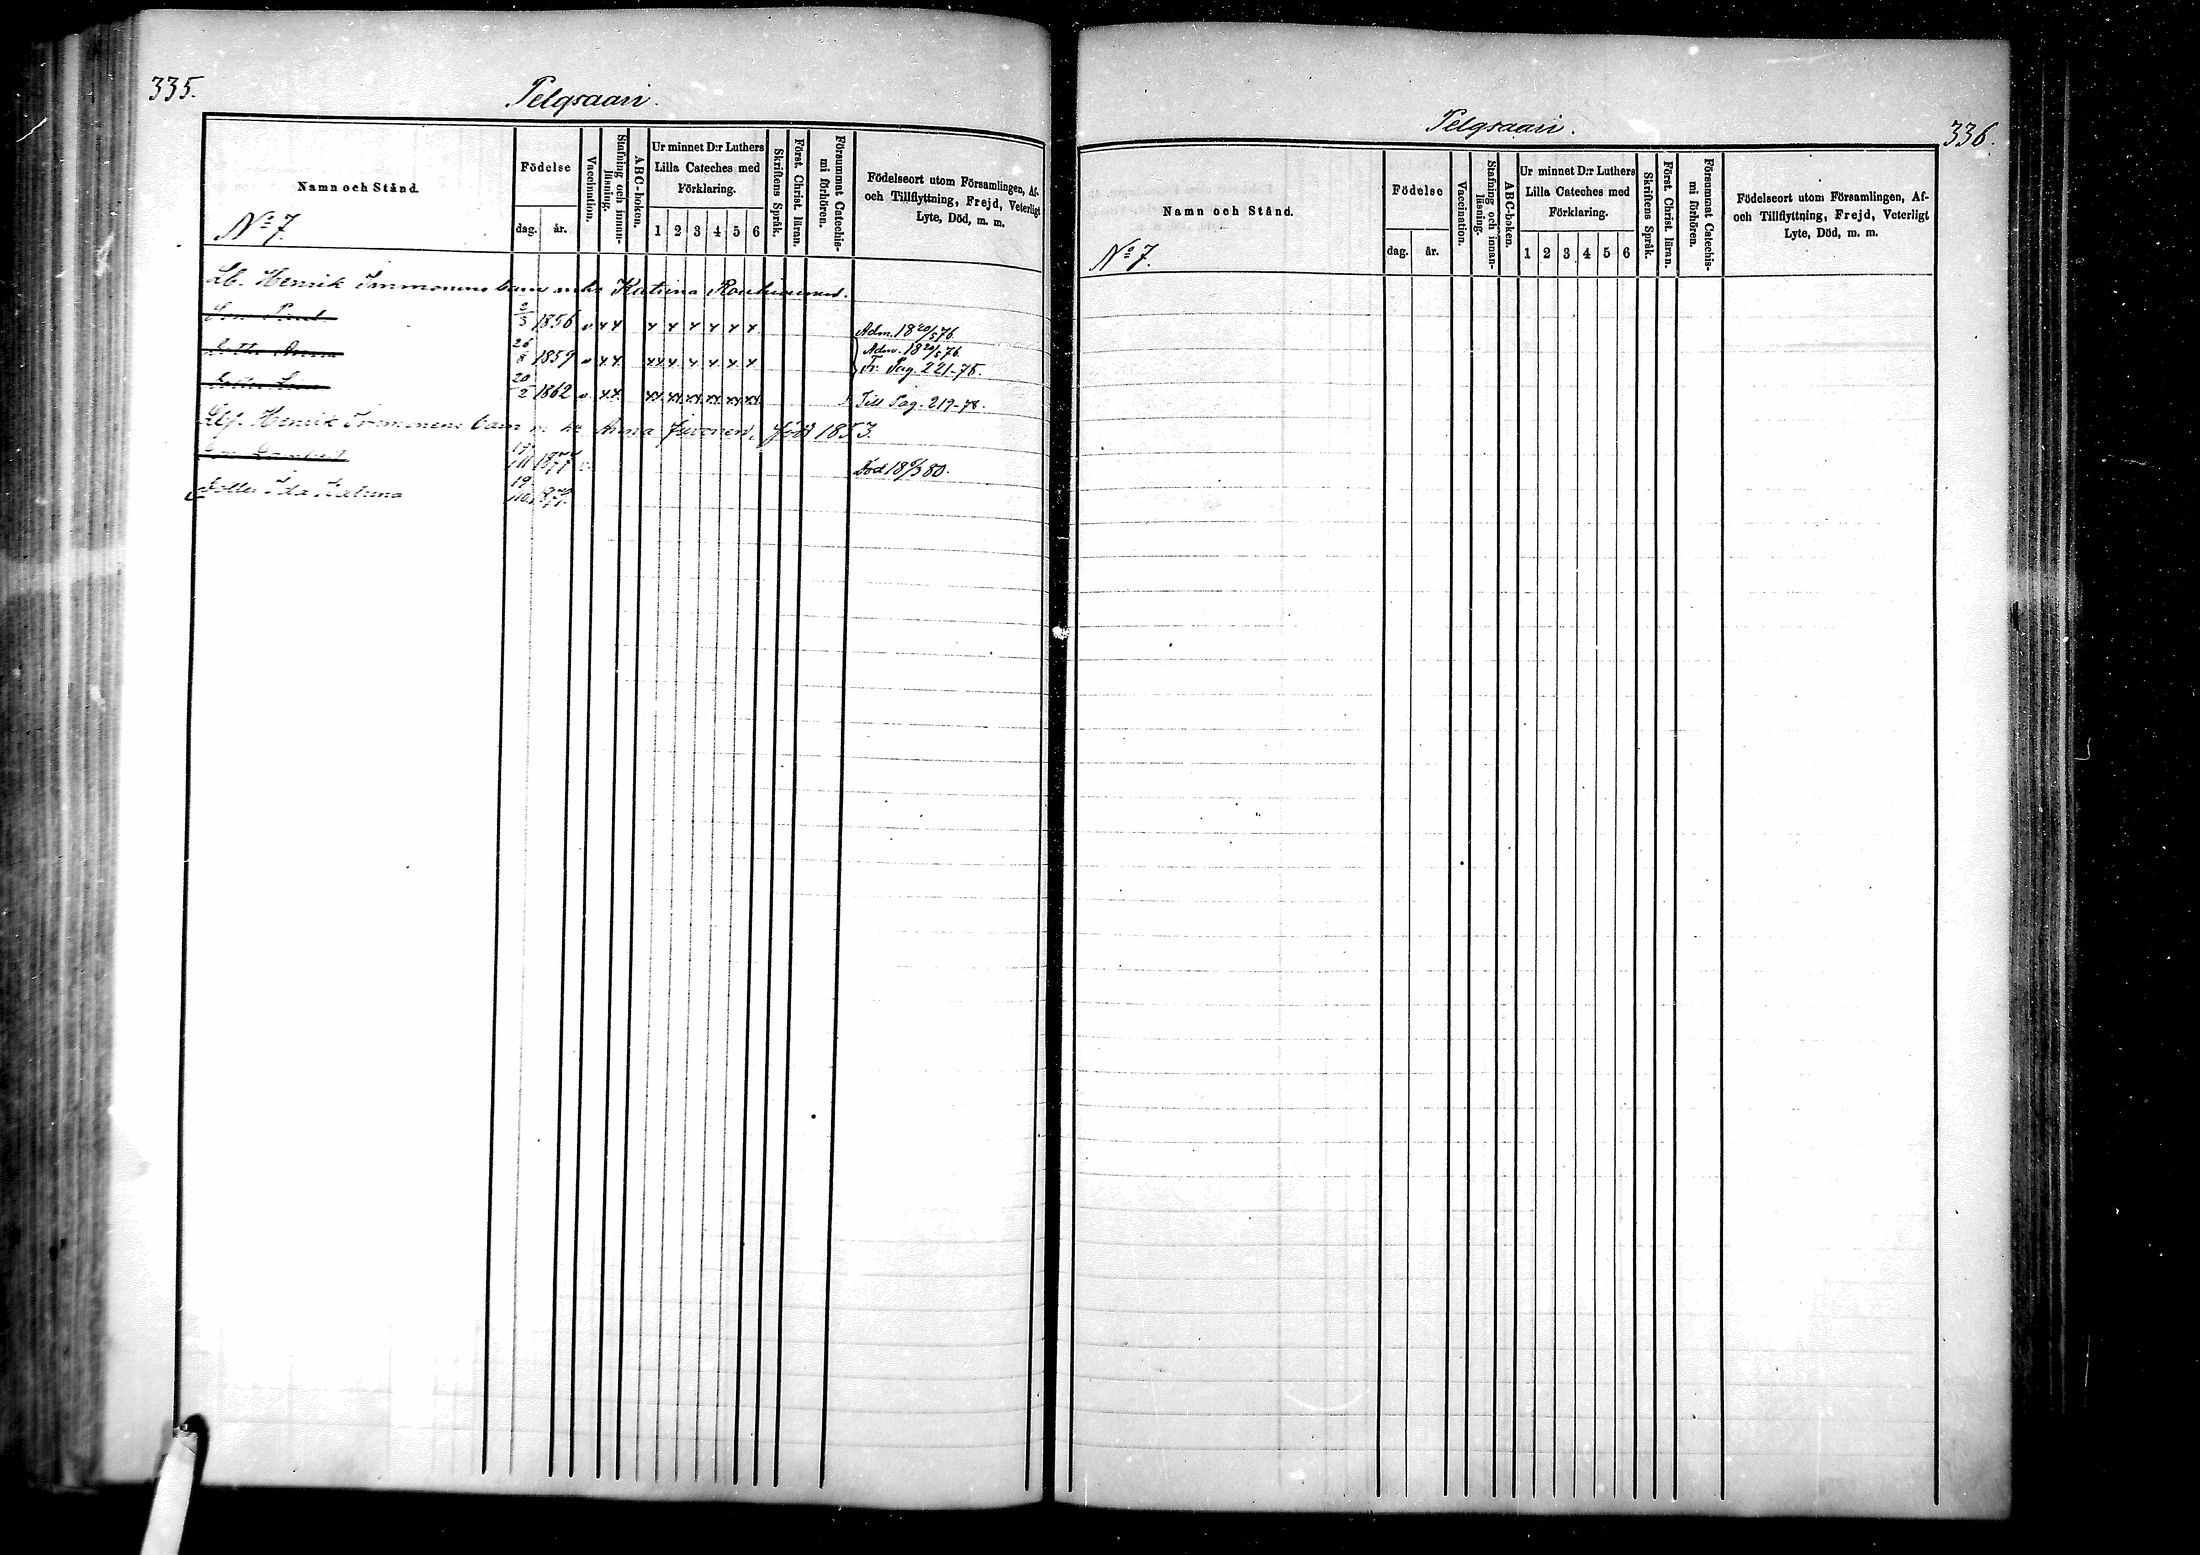 335.
Pelgsaari.
Namn och Stånd.
Födelse
dag.
år.
Vaccination.
Stafning och innan-
läsning.
ABC-boken.
Ur minnet D:r Luthers
Lilla Cateches med
Förklaring.
1 2 3 4 5 6
Skriftens Språk.
Först. Christ. läran.
Försummat Catechis-
mi förhören.
Födelseort utom Församlingen, Af-
och Tillflyttning, Frejd, Veterligt
Lyte, Död, m. m.
No 7.
Lb. Henrik Immonens barn m. ho Katrina
2/3 1856 v x x x x x x x x Adm. 18 20/5 76
Dottr. Anna 26 1859 v x x xx x x x x x Adm. 18 20/5 76.
Fr. Pag. 221-78.
20/2 1862 v x x xx xx xx xx xx xx Till Pag. 219-78.
Lbf. Henrik Immonens barn Anna född 1853.
17/11 1877 Död 18 80.
Dotter Ida Katrina 19/10 1879.
Pelgsaari.
336.
Namn och Stånd.
Födelse
dag.
år.
Vaccination.
Stafning och innan-
läsning.
ABC-boken.
Ur minnet D:r Luthers
Lilla Cateches med
Förklaring.
1 2 3 4 5 6
Skriftens Språk.
Först. Christ. läran.
Försummat Catechis-
mi förhören.
Födelseort utom Församlingen, Af-
och Tillflyttning, Frejd, Veterligt
Lyte, Död, m. m.
No 7.